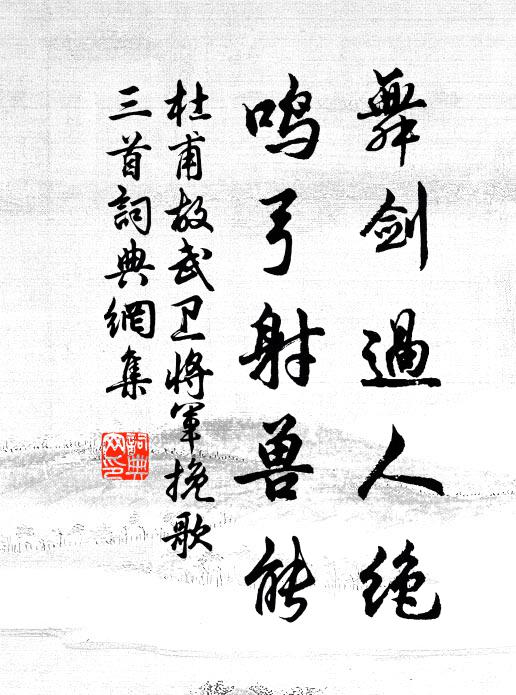 舞剑過人绝
鸣弓射兽能
杜甫故武卫将军挽歌
三首詞典網集
詞典
网印